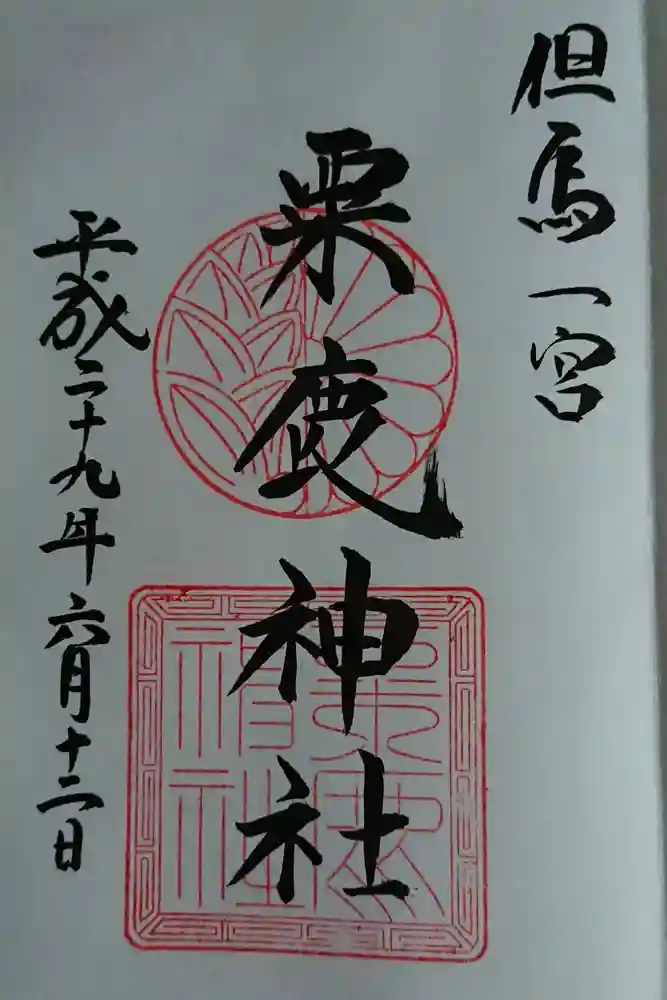 但馬一宮
粟鹿神社
平成二十九年六月十二日
粟鹿
神社